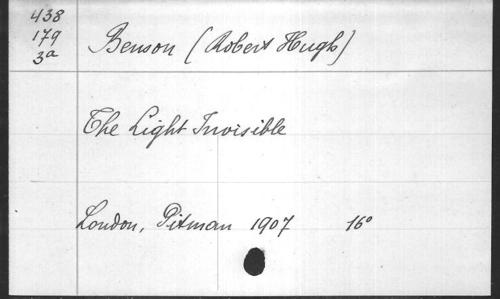 438
179
3a
Benson (Robert Hugh)
The Light Invisible
London, Pitman 1907 16°